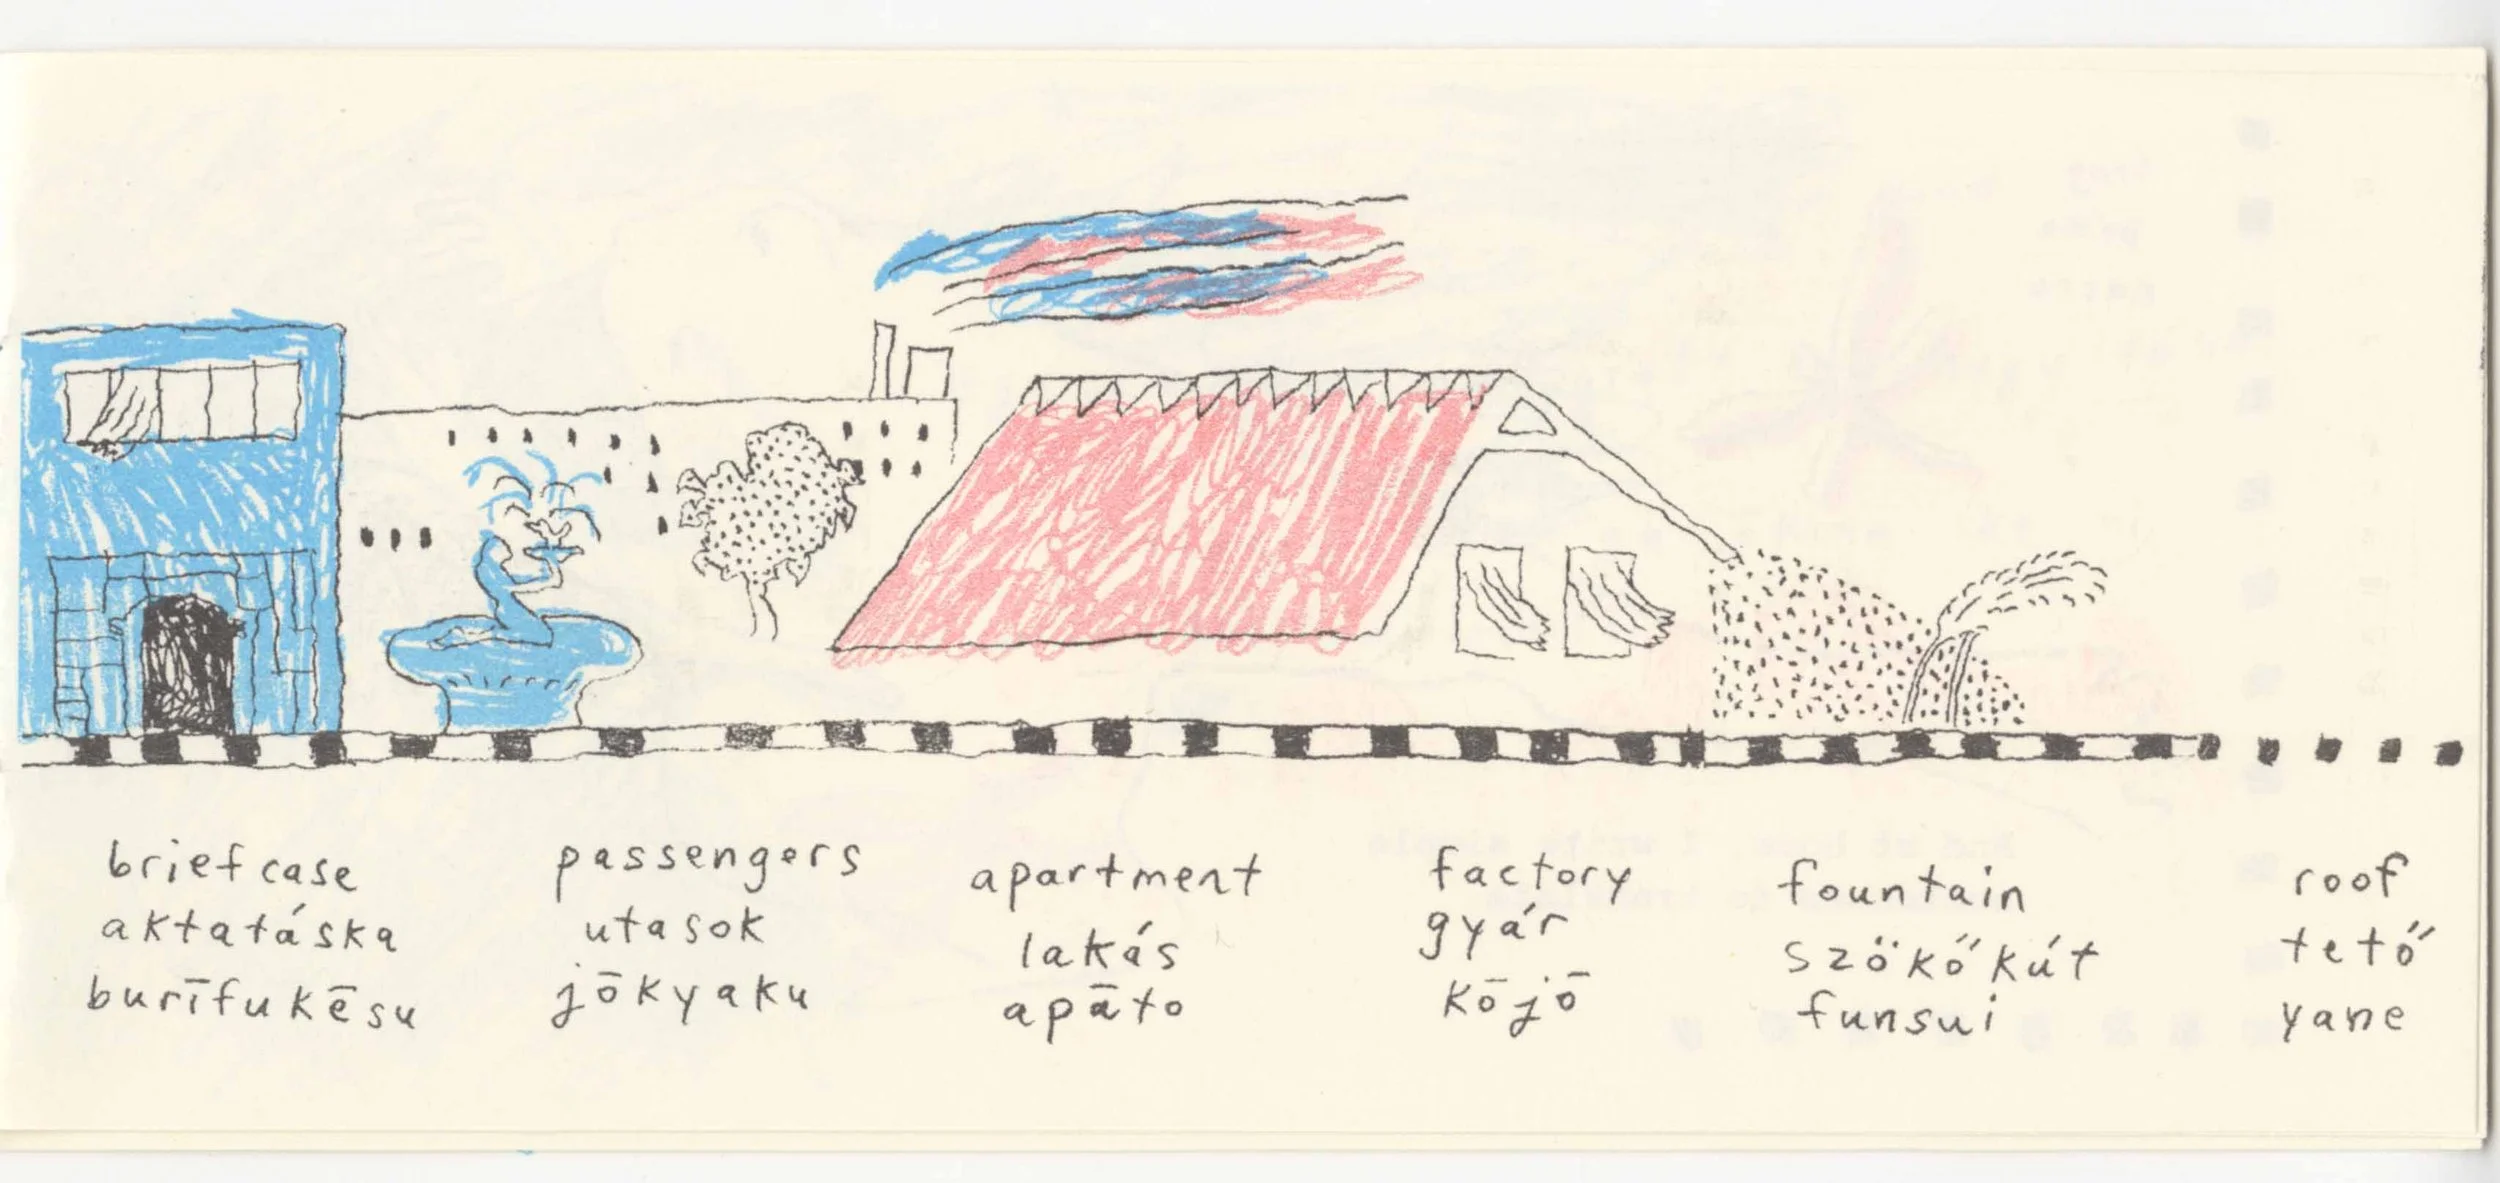 briefcase
aktatáska
burīfukēsu
passengers
utasok
jōkyaku
apartment
lakás
apāto
factory
gyár
kōjō
fountain
szökőkút
funsui
roof
tető
yane